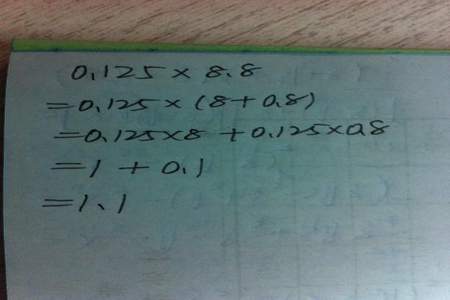 0.125×8.8
=0.125×(8+0.8)
=0.125×8+0.125×0.8
=1+0.1
=1.1